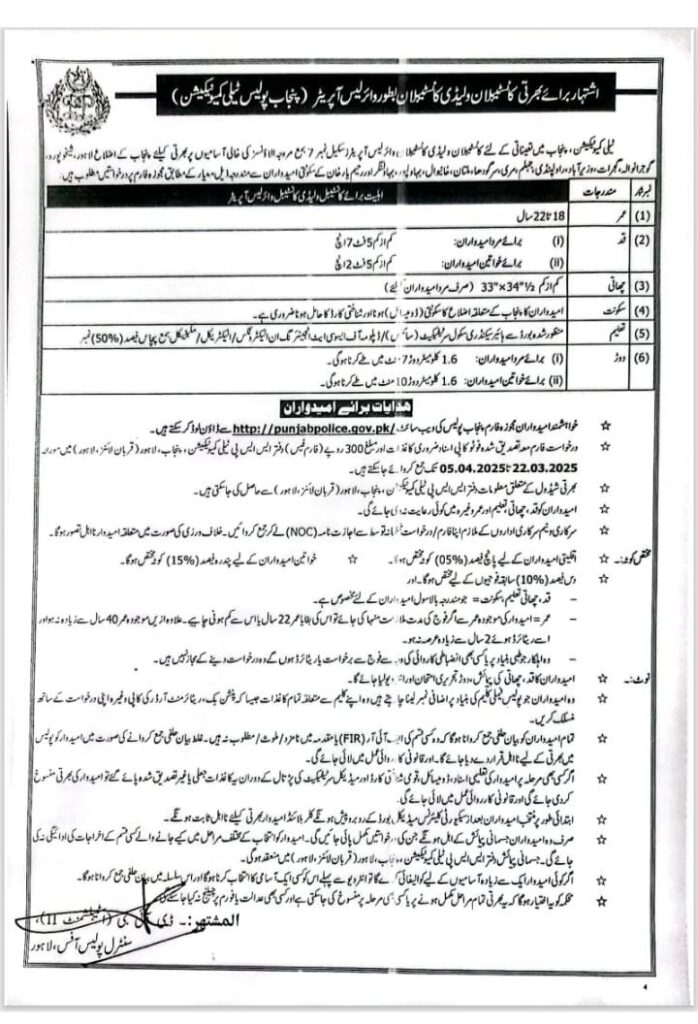 اشتہار برائے بھرتی کانسٹیبلان ولیڈی کانسٹیبلان بطور وائرلیس آپریٹر (پنجاب پولیس ٹیلی کمیونیکیشن)
ٹیلی کمیونیکیشن، پنجاب میں تعیناتی کے لئے کانسٹیبلان ولیڈی کانسٹیبلان وائرلیس آپریٹرز سکیل نمبر 7 بمع مروجہ الاؤنسز کی خالی آسامیوں پر بھرتی کیلئے پنجاب کے اضلاع لاہور، شیخوپورہ،
گوجرانوالہ، گجرات، وزیر آباد، راولپنڈی، جہلم، مری، سرگودھا، ملتان، خانیوال، بہاولپور، بہاولنگر اور رحیم یار خان کے سکونتی امیدواران سے مندرجہ ذیل معیار کے مطابق مجوزہ فارم پر درخواستیں مطلوب ہیں۔
نمبر شمار مندرجات اہلیت برائے کانسٹیبل ولیڈی کانسٹیبل وائرلیس آپریٹر
(1) عمر 18 تا 22 سال
(2) قد (i) برائے مرد امیدواران: کم از کم 5 فٹ 7 انچ
(ii) برائے خواتین امیدواران: کم از کم 5 فٹ 2 انچ
(3) چھاتی کم از کم 33"×34½" (صرف مرد امیدواران کیلئے)
(4) سکونت امیدواران کا پنجاب کے متعلقہ اضلاع کا سکونتی (ڈومیسائل) ہونا اور شناختی کارڈ کا حامل ہونا ضروری ہے۔
(5) تعلیم منظور شدہ بورڈ سے ہائیر سیکنڈری سکول سرٹیفکیٹ (سائنس)/ڈپلومہ آف ایسوسی ایٹ انجینئرنگ ان الیکٹرونکس/الیکٹریکل/مکینیکل بمع پچاس فیصد (50%) نمبر
(6) دوڑ (i) برائے مرد امیدواران: 1.6 کلومیٹر دوڑ 7 منٹ میں طے کرنا ہوگی۔
(ii) برائے خواتین امیدواران: 1.6 کلومیٹر دوڑ 10 منٹ میں طے کرنا ہوگی۔
ھدایات برائے امیدواران
☆ خواہشمند امیدواران مجوزہ فارم پنجاب پولیس کی ویب سائٹ http://punjabpolice.gov.pk/ سے ڈاؤن لوڈ کر سکتے ہیں۔
☆ درخواست فارم معہ تصدیق شدہ فوٹو کاپی اسناد ضروری کاغذات اور مبلغ 300 روپے (فارم فیس) دفتر ایس ایس پی ٹیلی کمیونیکیشن، پنجاب، لاہور (قربان لائنز، لاہور) میں مورخہ
22.03.2025 تا 05.04.2025 تک جمع کروائے جا سکتے ہیں۔
☆ بھرتی شیڈول کے متعلق معلومات دفتر ایس ایس پی ٹیلی کمیونیکیشن پنجاب، لاہور (قربان لائنز، لاہور) سے حاصل کی جا سکتی ہیں۔
☆ امیدواران کو قد، چھاتی، تعلیم اور عمر وغیرہ میں کوئی رعایت نہ دی جائے گی۔
☆ سرکاری و نیم سرکاری اداروں کے ملازم اپنا فارم/درخواست محکمانہ توسط سے اجازت نامہ (NOC) لے کر جمع کروائیں۔ خلاف ورزی کی صورت میں متعلقہ امیدوار نا اہل تصور ہوگا۔
مختص کوٹہ:۔ ☆ اقلیتی امیدواران کے لیے پانچ فیصد (05%) کوٹہ مختص ہوگا۔ ☆ خواتین امیدواران کے لیے پندرہ فیصد (15%) کوٹہ مختص ہوگا۔
☆ دس فیصد (10%) سابقہ فوجیوں کے لیے مختص ہوگا۔ اور
– قد، چھاتی، تعلیم، سکونت = جو مندرجہ بالا سول امیدواران کے لئے مخصوص ہے۔
– عمر = امیدوار کی موجودہ عمر سے اگر فوج کی مدت ملازمت منہا کی جائے تو اس کی بقایا عمر 22 سال یا اس سے کم ہونی چاہیے۔ علاوہ ازیں موجودہ عمر 40 سال سے زیادہ نہ ہو اور
اسے ریٹائرڈ ہوئے 2 سال سے زیادہ عرصہ نہ ہو۔
– وہ اہلکار جو طبی بنیاد پر یا کسی بھی انضباطی کارروائی کی وجہ سے فوج سے برخواست یا ریٹائرڈ ہوں گے وہ درخواست دینے کے مجاز نہیں ہیں۔
نوٹ:۔ ☆ امیدواران کا قد، چھاتی کی پیمائش، دوڑ، تحریری امتحان اور انٹرویو لیا جائے گا۔
☆ وہ امیدواران جو پولیس فیملی کلیم کی بنیاد پر اضافی نمبر لینا چاہتے ہیں وہ اپنے کلیم سے متعلقہ تمام کاغذات جیسا کہ پنشن بک، ریٹائرمنٹ آرڈر کی کاپی وغیرہ اپنی درخواست کے ساتھ
منسلک کریں۔
☆ تمام امیدواران کو بیان حلفی جمع کروانا ہوگا کہ وہ کسی قسم کی ایف آئی آر (FIR) یا مقدمہ میں نامزد/ملوث/مطلوب نہ ہیں۔ غلط بیان حلفی جمع کروانے کی صورت میں امیدوار کو پولیس
میں بھرتی کے لیے نا اہل قرار دے دیا جائے گا۔ اور قانونی کارروائی عمل میں لائی جائے گی۔
☆ اگر کسی بھی مرحلہ پر امیدوار کی تعلیمی اسناد، ڈومیسائل، قومی شناختی کارڈ اور میڈیکل سرٹیفکیٹ کی پڑتال کے دوران یہ کاغذات جعلی یا غیر تصدیق شدہ پائے گئے تو امیدوار کی بھرتی منسوخ
کر دی جائے گی اور قانونی کارروائی عمل میں لائی جائے گی۔
☆ ابتدائی طور پر منتخب امیدواران بعد از سکیورٹی کلیئرنس میڈیکل بورڈ کے روبرو پیش ہونگے کلر بلائنڈ امیدوار بھرتی کیلئے نا اہل ثابت ہونگے۔
☆ صرف وہ امیدواران جسمانی پیمائش کے اہل ہونگے جن کی درخواستیں مکمل پائی جائیں گی۔ امیدوار کو انتخاب کے مختلف مراحل میں کیے جانے والے کسی قسم کے اخراجات کی ادائیگی نہ کی
جائے گی۔ جسمانی پیمائش دفتر ایس ایس پی ٹیلی کمیونیکیشن پنجاب، لاہور (قربان لائنز، لاہور) میں منعقد ہوگی۔
☆ اگر کوئی امیدوار ایک سے زیادہ آسامیوں کے لیے کوالیفائی کرے گا تو انٹرویو سے پہلے اس کو کسی ایک آسامی کا انتخاب کرنا ہوگا اور اس سلسلہ میں بیان حلفی جمع کروانا ہوگا۔
☆ محکمہ کو یہ اختیار ہوگا کہ یہ بھرتی تمام مراحل مکمل ہونے پر یا کسی بھی مرحلہ پر منسوخ کی جا سکتی ہے اور کسی بھی عدالت یا فورم پر چیلنج نہ کیا جا سکے گا
المشتھر:۔ ڈی آئی جی (اسٹیبلشمنٹ II)،
سنٹرل پولیس آفس، لاہور
4